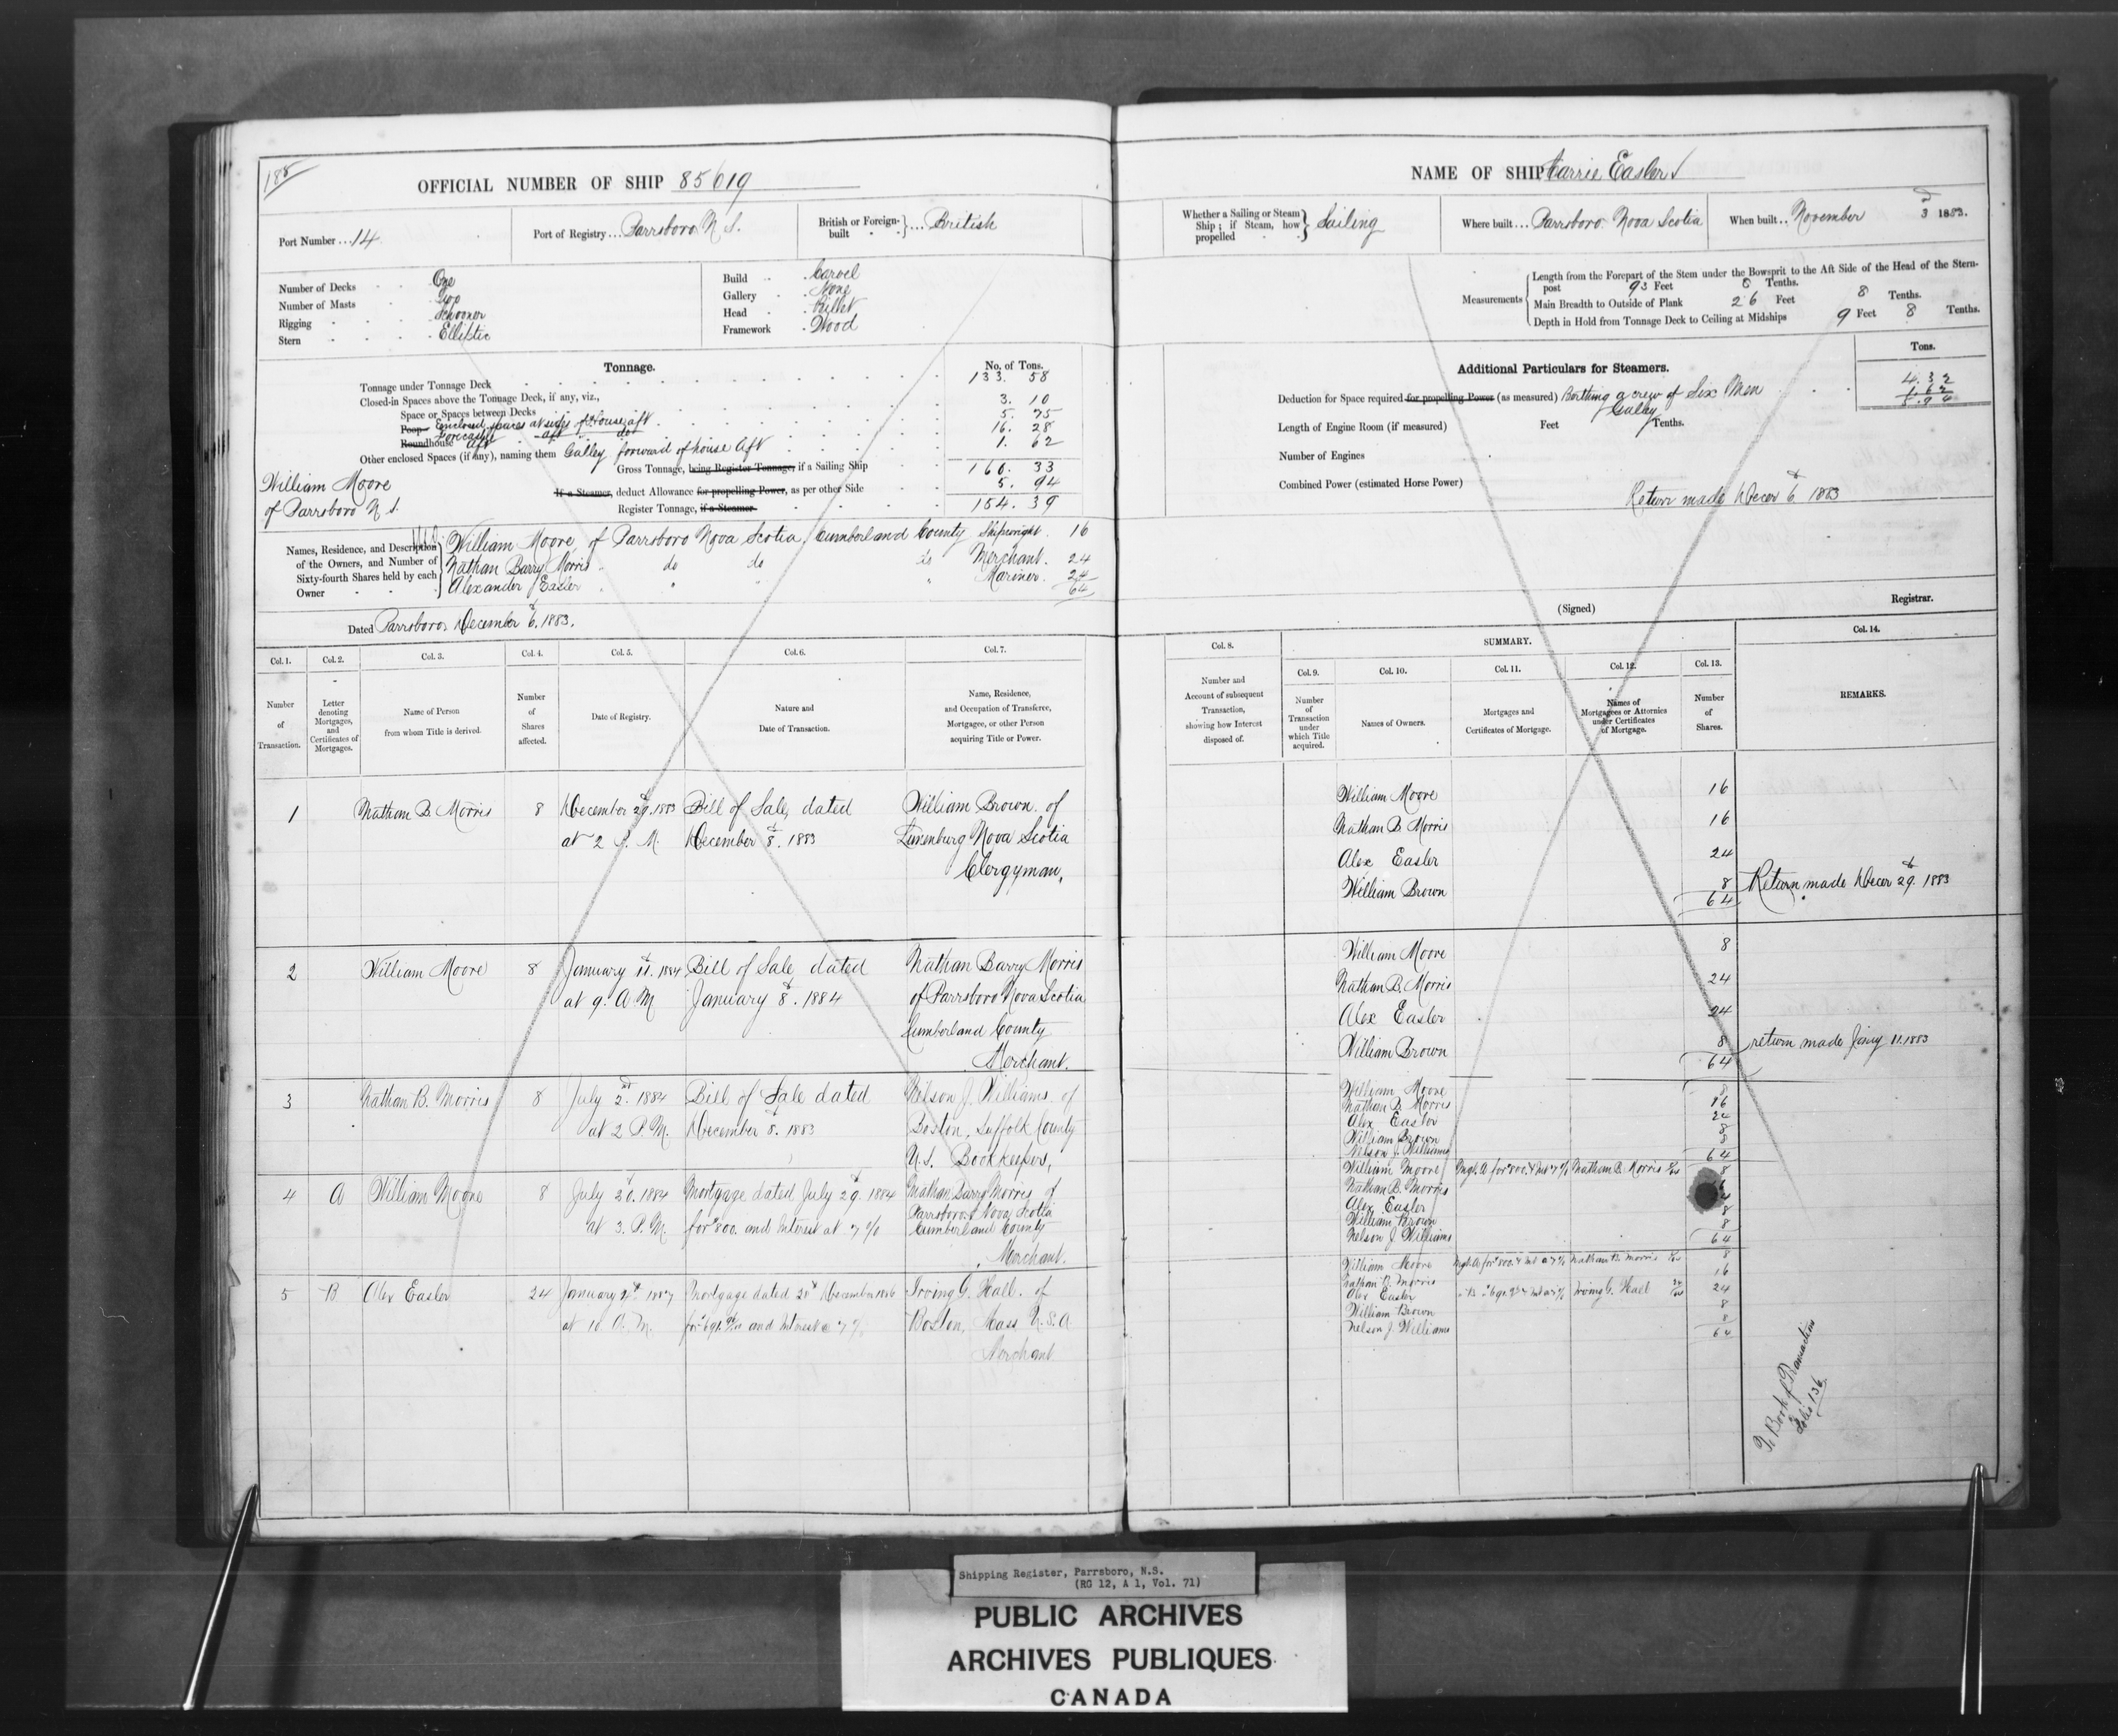 188
OFFICIAL NUMBER OF SHIP 85619
Port Number ... 14
Port of Registry ... Parrsboro N S.
British or Foreign-built } ... British
Number of Decks One
Number of Masts Two
Rigging Schooner
Stern Elliptic
Build Carvel
Gallery None
Head Billet
Framework Wood
Tonnage.
No. of Tons.
Tonnage under Tonnage Deck 133. 58
Closed-in Spaces above the Tonnage Deck, if any, viz.,
Space or Spaces between Decks 3. 10
Poop enclosed spaces at sides of house aft 5. 75
Roundhouse aft 16. 28
Other enclosed Spaces (if any), naming them Galley forward of house aft 1. 62
Gross Tonnage, being Register Tonnage, if a Sailing Ship 160. 33
If a Steamer, deduct Allowance for propelling Power, as per other Side 5. 94
Register Tonnage, if a Steamer 154. 39
William Moore
of Parrsboro N S.
Names, Residence, and Description of the Owners, and Number of Sixty-fourth Shares held by each Owner
William Moore, of Parrsboro Nova Scotia, Cumberland County Shipwright. 16
Nathan Barry Morris do do do Merchant. 24
Alexander Easler " " " Mariner. 24
64
Dated Parrsboro, December 6, 1883.
Col. 1. Col. 2. Col. 3. Col. 4. Col. 5. Col. 6. Col. 7.
Number of Transaction.
Letter denoting Mortgages, and Certificates of Mortgages.
Name of Person from whom Title is derived.
Number of Shares affected.
Date of Registry.
Nature and Date of Transaction.
Name, Residence, and Occupation of Transferee, Mortgagee, or other Person acquiring Title or Power.
1 Nathan B. Morris 8 December 29. 1883 Bill of Sale, dated William Brown of
at 2 P. M. December 8. 1883 Lunenburg Nova Scotia
Clergyman,
2 William Moore 8 January 11. 1884 Bill of Sale, dated Nathan Barry Morris
at 9. A. M January 8. 1884 of Parrsboro Nova Scotia
Cumberland County
Merchant.
3 Nathan B. Morris 8 July 2. 1884 Bill of Sale dated Nelson J. Williams of
at 2 P. M. December 8. 1883 Boston, Suffolk County
U.S. Bookkeeper,
4 A William Moore 8 July 30. 1884 Mortgage dated July 29. 1884 Nathan Barry Morris of
at 3. P. M. for $800. and Interest at 7 % Parrsboro Nova Scotia
Cumberland County
Merchant.
5 B Alex Easler 24 January 4th 1887 Mortgage dated 28th December 1886 Irving G. Hall. of
at 10 A. M. and Interest @ 7 % Boston, Mass U.S.A
Merchant
NAME OF SHIP Carrie Easler
Whether a Sailing or Steam Ship; if Steam, how propelled } Sailing
Where built ... Parrsboro. Nova Scotia
When built .. November 3d 1883.
Measurements
Length from the Forepart of the Stem under the Bowsprit to the Aft Side of the Head of the Stern-
post 93 Feet Tenths.
Main Breadth to Outside of Plank 26 Feet 8 Tenths.
Depth in Hold from Tonnage Deck to Ceiling at Midships 9 Feet 8 Tenths.
Additional Particulars for Steamers.
Tons.
Deduction for Space required for propelling Power (as measured) Berthing a crew of Six Men 4. 32
Galley 1. 62
5. 94
Length of Engine Room (if measured) Feet Tenths.
Number of Engines
Combined Power (estimated Horse Power)
Return made Decer 6. 1883
(Signed) Registrar.
Col. 8. SUMMARY. Col. 14.
Col. 9. Col. 10. Col. 11. Col. 12. Col. 13.
Number and Account of subsequent Transaction, showing how Interest disposed of.
Number of Transaction under which Title acquired.
Names of Owners.
Mortgages and Certificates of Mortgage.
Names of Mortgagees or Attornies under Certificates of Mortgage.
Number of Shares.
REMARKS.
William Moore 16
Nathan B. Morris 16
Alex Easler 24
William Brown 8 Return made Decer 29. 1883
64
William Moore 8
Nathan B. Morris 24
Alex Easler 24
William Brown 8 return made Jany 11. 1883
64
William Moore 8
Nathan B. Morris 16
Alex Easler 24
William Brown 8
Nelson J. Williams 8
64
William Moore Mtge. A for $800. & Int 7 % Nathan B. Morris 8
Nathan B. Morris
Alex Easler
William Brown 8
Nelson J Williams 8
64
William Moore Mtge. A for $800. & Int @ 7 % Nathan B. Morris 8
Nathan B. Morris 16
Alex Easler Irving G. Hall 24
William Brown 8
Nelson J. Williams 8
64
To Book of Transactions
Folio 136
Shipping Register, Parrsboro, N.S.
(RG 12, A 1, Vol. 71)
PUBLIC ARCHIVES
ARCHIVES PUBLIQUES
CANADA